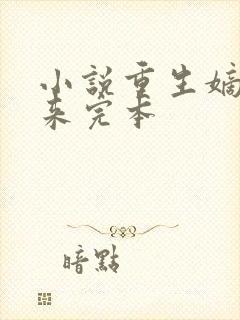 小说重生嫡
来完本
暗點